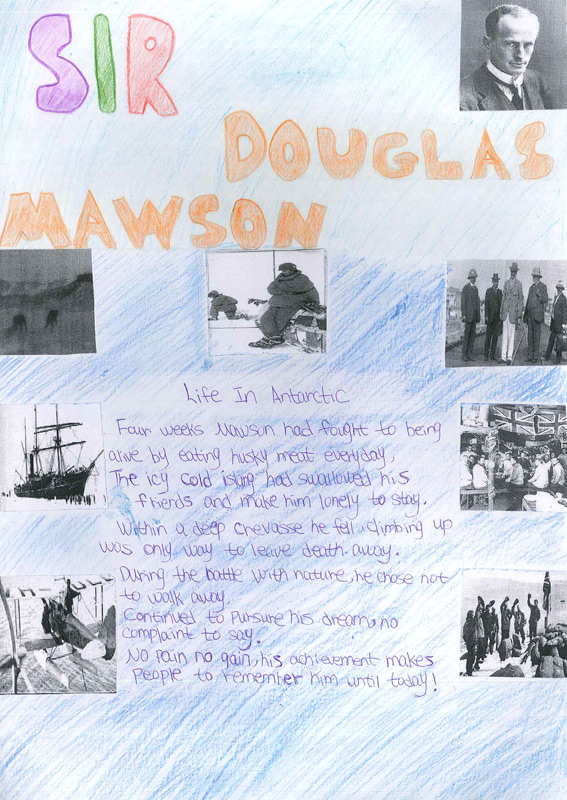 SIR
DOUGLAS
MAWSON
Life In Antarctic
Four weeks Mawson had fought to being
arive by eating husky meat everyday,
The icy cold islang had swallowed his
friends and make him lonely to stay.
Within a deep crevasse he fell, climbing up
was only way to leave death away.
During the battle with nature, he chose not
to walk away,
Continued to pursure his dream, no
complaint to say.
No pain no gain, his achievement makes
people to remember him until today!